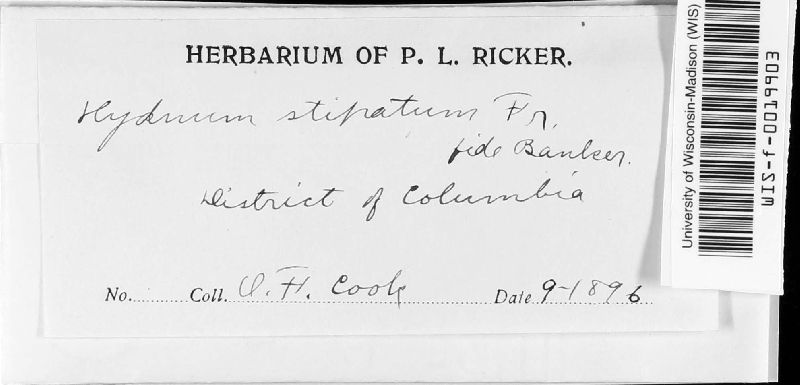 HERBARIUM OF P. L. RICKER.
Hydnum stipatum Fr.
fide Banker.
District of Columbia
No. Coll. O. F. Cook Date 9-1896
University of Wisconsin-Madison (WIS)
WIS-f-0019903